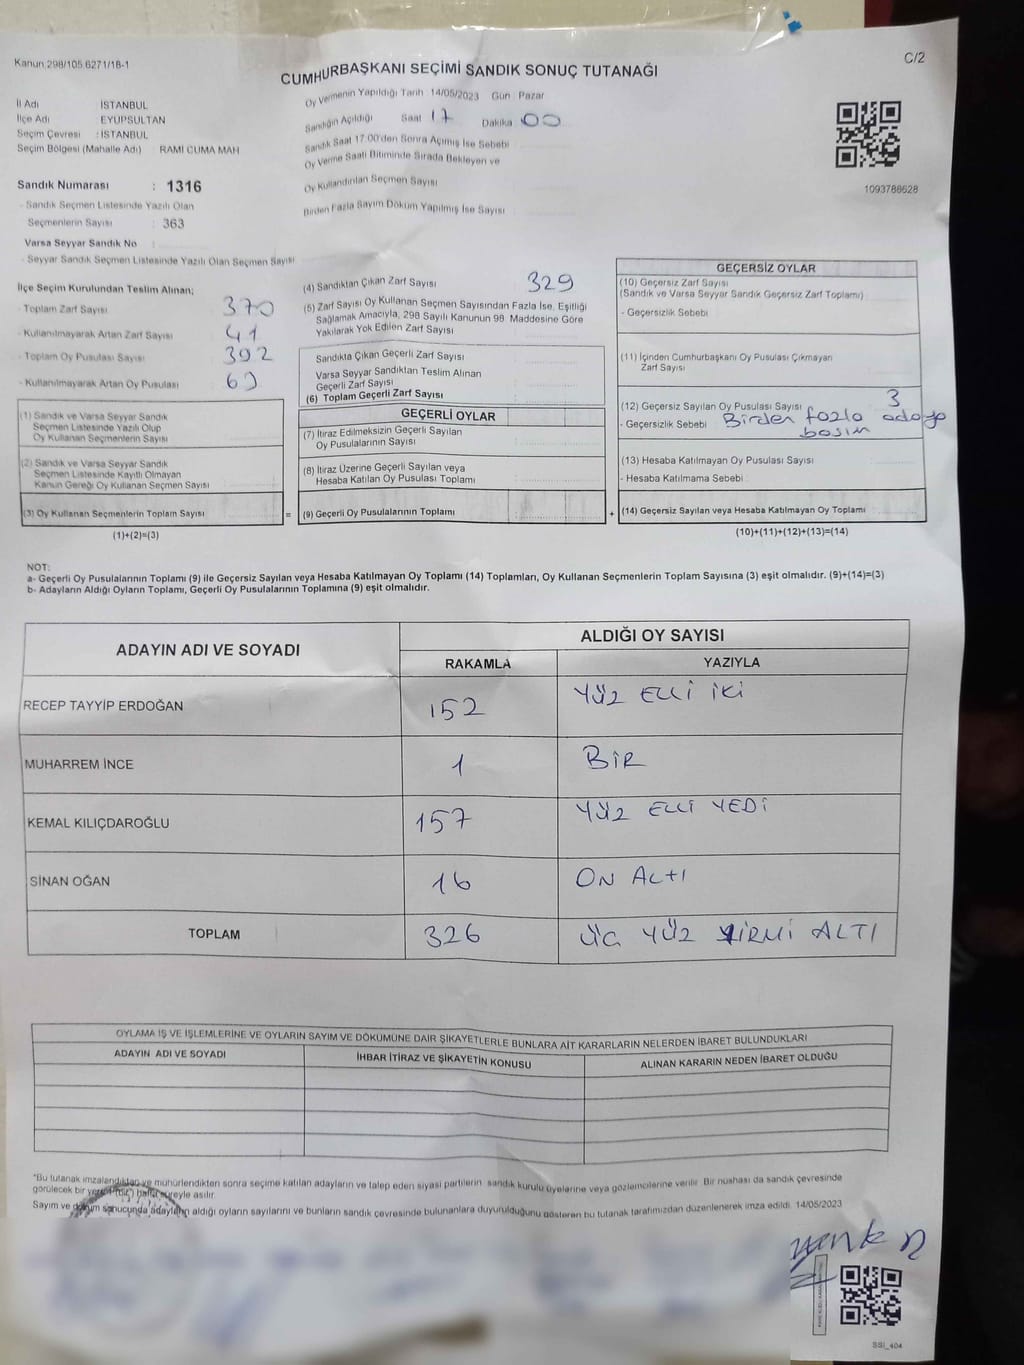 Kanun 298/105 6271/18-1
C/2
CUMHURBAŞKANI SEÇİMİ SANDIK SONUÇ TUTANAĞI
İl Adı : İSTANBUL
İlçe Adı : EYÜPSULTAN
Seçim Çevresi : İSTANBUL
Seçim Bölgesi (Mahalle Adı) RAMİ CUMA MAH
Oy Vermenin Yapıldığı Tarih 14/05/2023 Gün Pazar
Sandığın Açıldığı Saat 17 Dakika 00
Sandık Saat 17.00'den Sonra Açılmış İse Sebebi
Oy Verme Saati Bitiminde Sırada Bekleyen ve
Oy Kullandırılan Seçmen Sayısı
Birden Fazla Sayım Döküm Yapılmış İse Sayısı
1093788628
Sandık Numarası : 1316
- Sandık Seçmen Listesinde Yazılı Olan
Seçmenlerin Sayısı : 363
Varsa Seyyar Sandık No
- Seyyar Sandık Seçmen Listesinde Yazılı Olan Seçmen Sayısı
İlçe Seçim Kurulundan Teslim Alınan;
- Toplam Zarf Sayısı 370
- Kullanılmayarak Artan Zarf Sayısı 41
- Toplam Oy Pusulası Sayısı 392
- Kullanılmayarak Artan Oy Pusulası 63
(1) Sandık ve Varsa Seyyar Sandık
Seçmen Listesinde Yazılı Olup
Oy Kullanan Seçmenlerin Sayısı
(2) Sandık ve Varsa Seyyar Sandık
Seçmen Listesinde Kayıtlı Olmayan
Kanun Gereği Oy Kullanan Seçmen Sayısı
(3) Oy Kullanan Seçmenlerin Toplam Sayısı
(1)+(2)=(3)
=
(4) Sandıktan Çıkan Zarf Sayısı 329
(5) Zarf Sayısı Oy Kullanan Seçmen Sayısından Fazla İse, Eşitliği
Sağlamak Amacıyla, 298 Sayılı Kanunun 98. Maddesine Göre
Yakılarak Yok Edilen Zarf Sayısı
Sandıkta Çıkan Geçerli Zarf Sayısı
Varsa Seyyar Sandıktan Teslim Alınan
Geçerli Zarf Sayısı
(6) Toplam Geçerli Zarf Sayısı
GEÇERLİ OYLAR
(7) İtiraz Edilmeksizin Geçerli Sayılan
Oy Pusulalarının Sayısı
(8) İtiraz Üzerine Geçerli Sayılan veya
Hesaba Katılan Oy Pusulası Toplamı
(9) Geçerli Oy Pusulalarının Toplamı
+
GEÇERSİZ OYLAR
(10) Geçersiz Zarf Sayısı
(Sandık ve Varsa Seyyar Sandık Geçersiz Zarf Toplamı)
- Geçersizlik Sebebi
(11) İçinden Cumhurbaşkanı Oy Pusulası Çıkmayan
Zarf Sayısı
(12) Geçersiz Sayılan Oy Pusulası Sayısı 3
- Geçersizlik Sebebi Birden fazla adaya
basım
(13) Hesaba Katılmayan Oy Pusulası Sayısı
- Hesaba Katılmama Sebebi
(14) Geçersiz Sayılan veya Hesaba Katılmayan Oy Toplamı
(10)+(11)+(12)+(13)=(14)
NOT:
a- Geçerli Oy Pusulalarının Toplamı (9) ile Geçersiz Sayılan veya Hesaba Katılmayan Oy Toplamı (14) Toplamları, Oy Kullanan Seçmenlerin Toplam Sayısına (3) eşit olmalıdır. (9)+(14)=(3)
b- Adayların Aldığı Oyların Toplamı, Geçerli Oy Pusulalarının Toplamına (9) eşit olmalıdır.
ADAYIN ADI VE SOYADI
ALDIĞI OY SAYISI
RAKAMLA YAZIYLA
RECEP TAYYİP ERDOĞAN 152 YÜZ ELLİ İKİ
MUHARREM İNCE 1 BİR
KEMAL KILIÇDAROĞLU 157 YÜZ ELLİ YEDİ
SİNAN OĞAN 16 ON ALTI
TOPLAM 326 ÜÇ YÜZ YİRMİ ALTI
OYLAMA İŞ VE İŞLEMLERİNE VE OYLARIN SAYIM VE DÖKÜMÜNE DAİR ŞİKAYETLERLE BUNLARA AİT KARARLARIN NELERDEN İBARET BULUNDUKLARI
ADAYIN ADI VE SOYADI İHBAR İTİRAZ VE ŞİKAYETİN KONUSU ALINAN KARARIN NEDEN İBARET OLDUĞU
*Bu tutanak imzalandıktan ve mühürlendikten sonra seçime katılan adayların ve talep eden siyasi partilerin sandık kurulu üyelerine veya gözlemcilerine verilir. Bir nüshası da sandık çevresinde
görülecek bir yere 1 (bir) hafta süreyle asılır.
Sayım ve döküm sonucunda adayların aldığı oyların sayılarını ve bunların sandık çevresinde bulunanlara duyurulduğunu gösteren bu tutanak tarafımızdan düzenlenerek imza edildi. 14/05/2023
SSİ_404